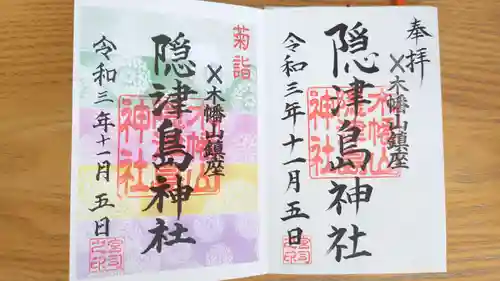 奉拝
〆木幡山鎮座
隠津島神社
令和三年十一月五日
菊詣
〆木幡山鎮座
隠津島神社
令和三年十一月五日